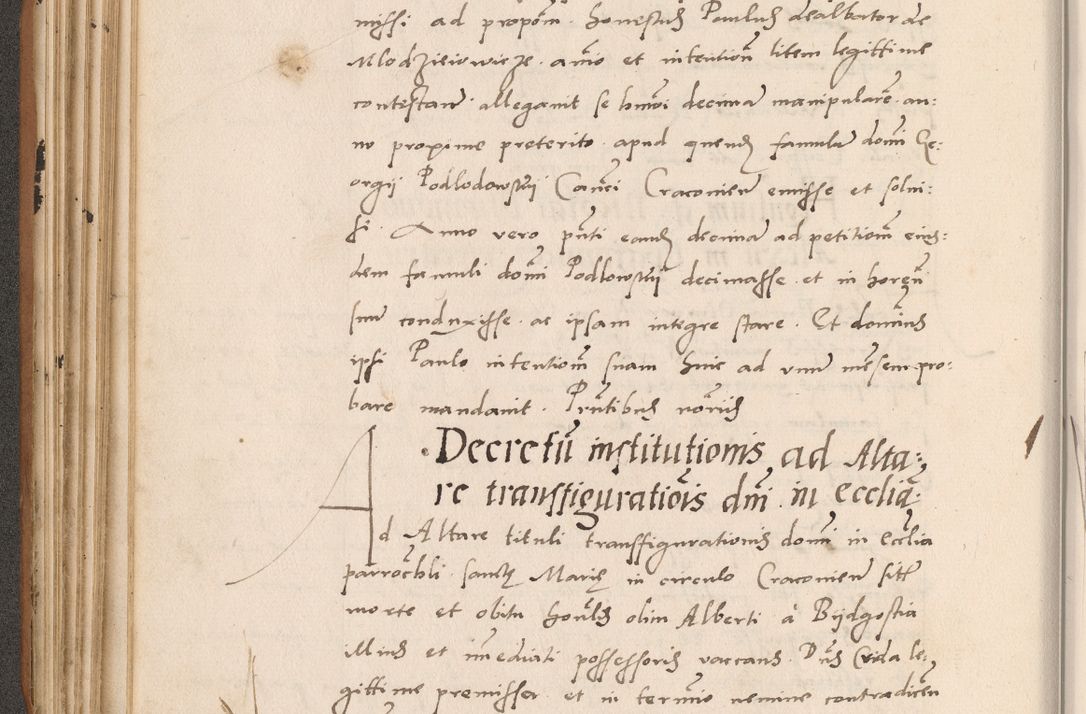 missi ad propom. honestus Paulus dealbator de
Mlodzieiowicze. animo et intention litem legittime
contestan. allegavit se hmoi decimam manipularem. an:
no proxime preterito. apud quendam famulum domini Ge:
orgii Podlodowskii Canci Cracovien emisse et solui:
si. Anno vero pnti eandem decimam ad petitionem eius:
dem famuli domini Podlowskij decimasse. et in horeum
suum conduxisse. ac ipsam integre stare. Et dominus
ipsi Paulo intentionem suam hinc ad unum mensem pro:
bare mandavit. Prntibus
Decretum institutionis ad Alta:
re transfigurationis dni. in ecclia:
Ad Altare tituli transfigurationis domini in ecclia
parrochli. sanctę Marię in circulo Cracovien sitt
morte et obitu honlis olim Alberti à Bijdgostia
illius et immediati possessoris vaccans. Dnus Crida le:
gittime premissa. et in termino nemine contradicen